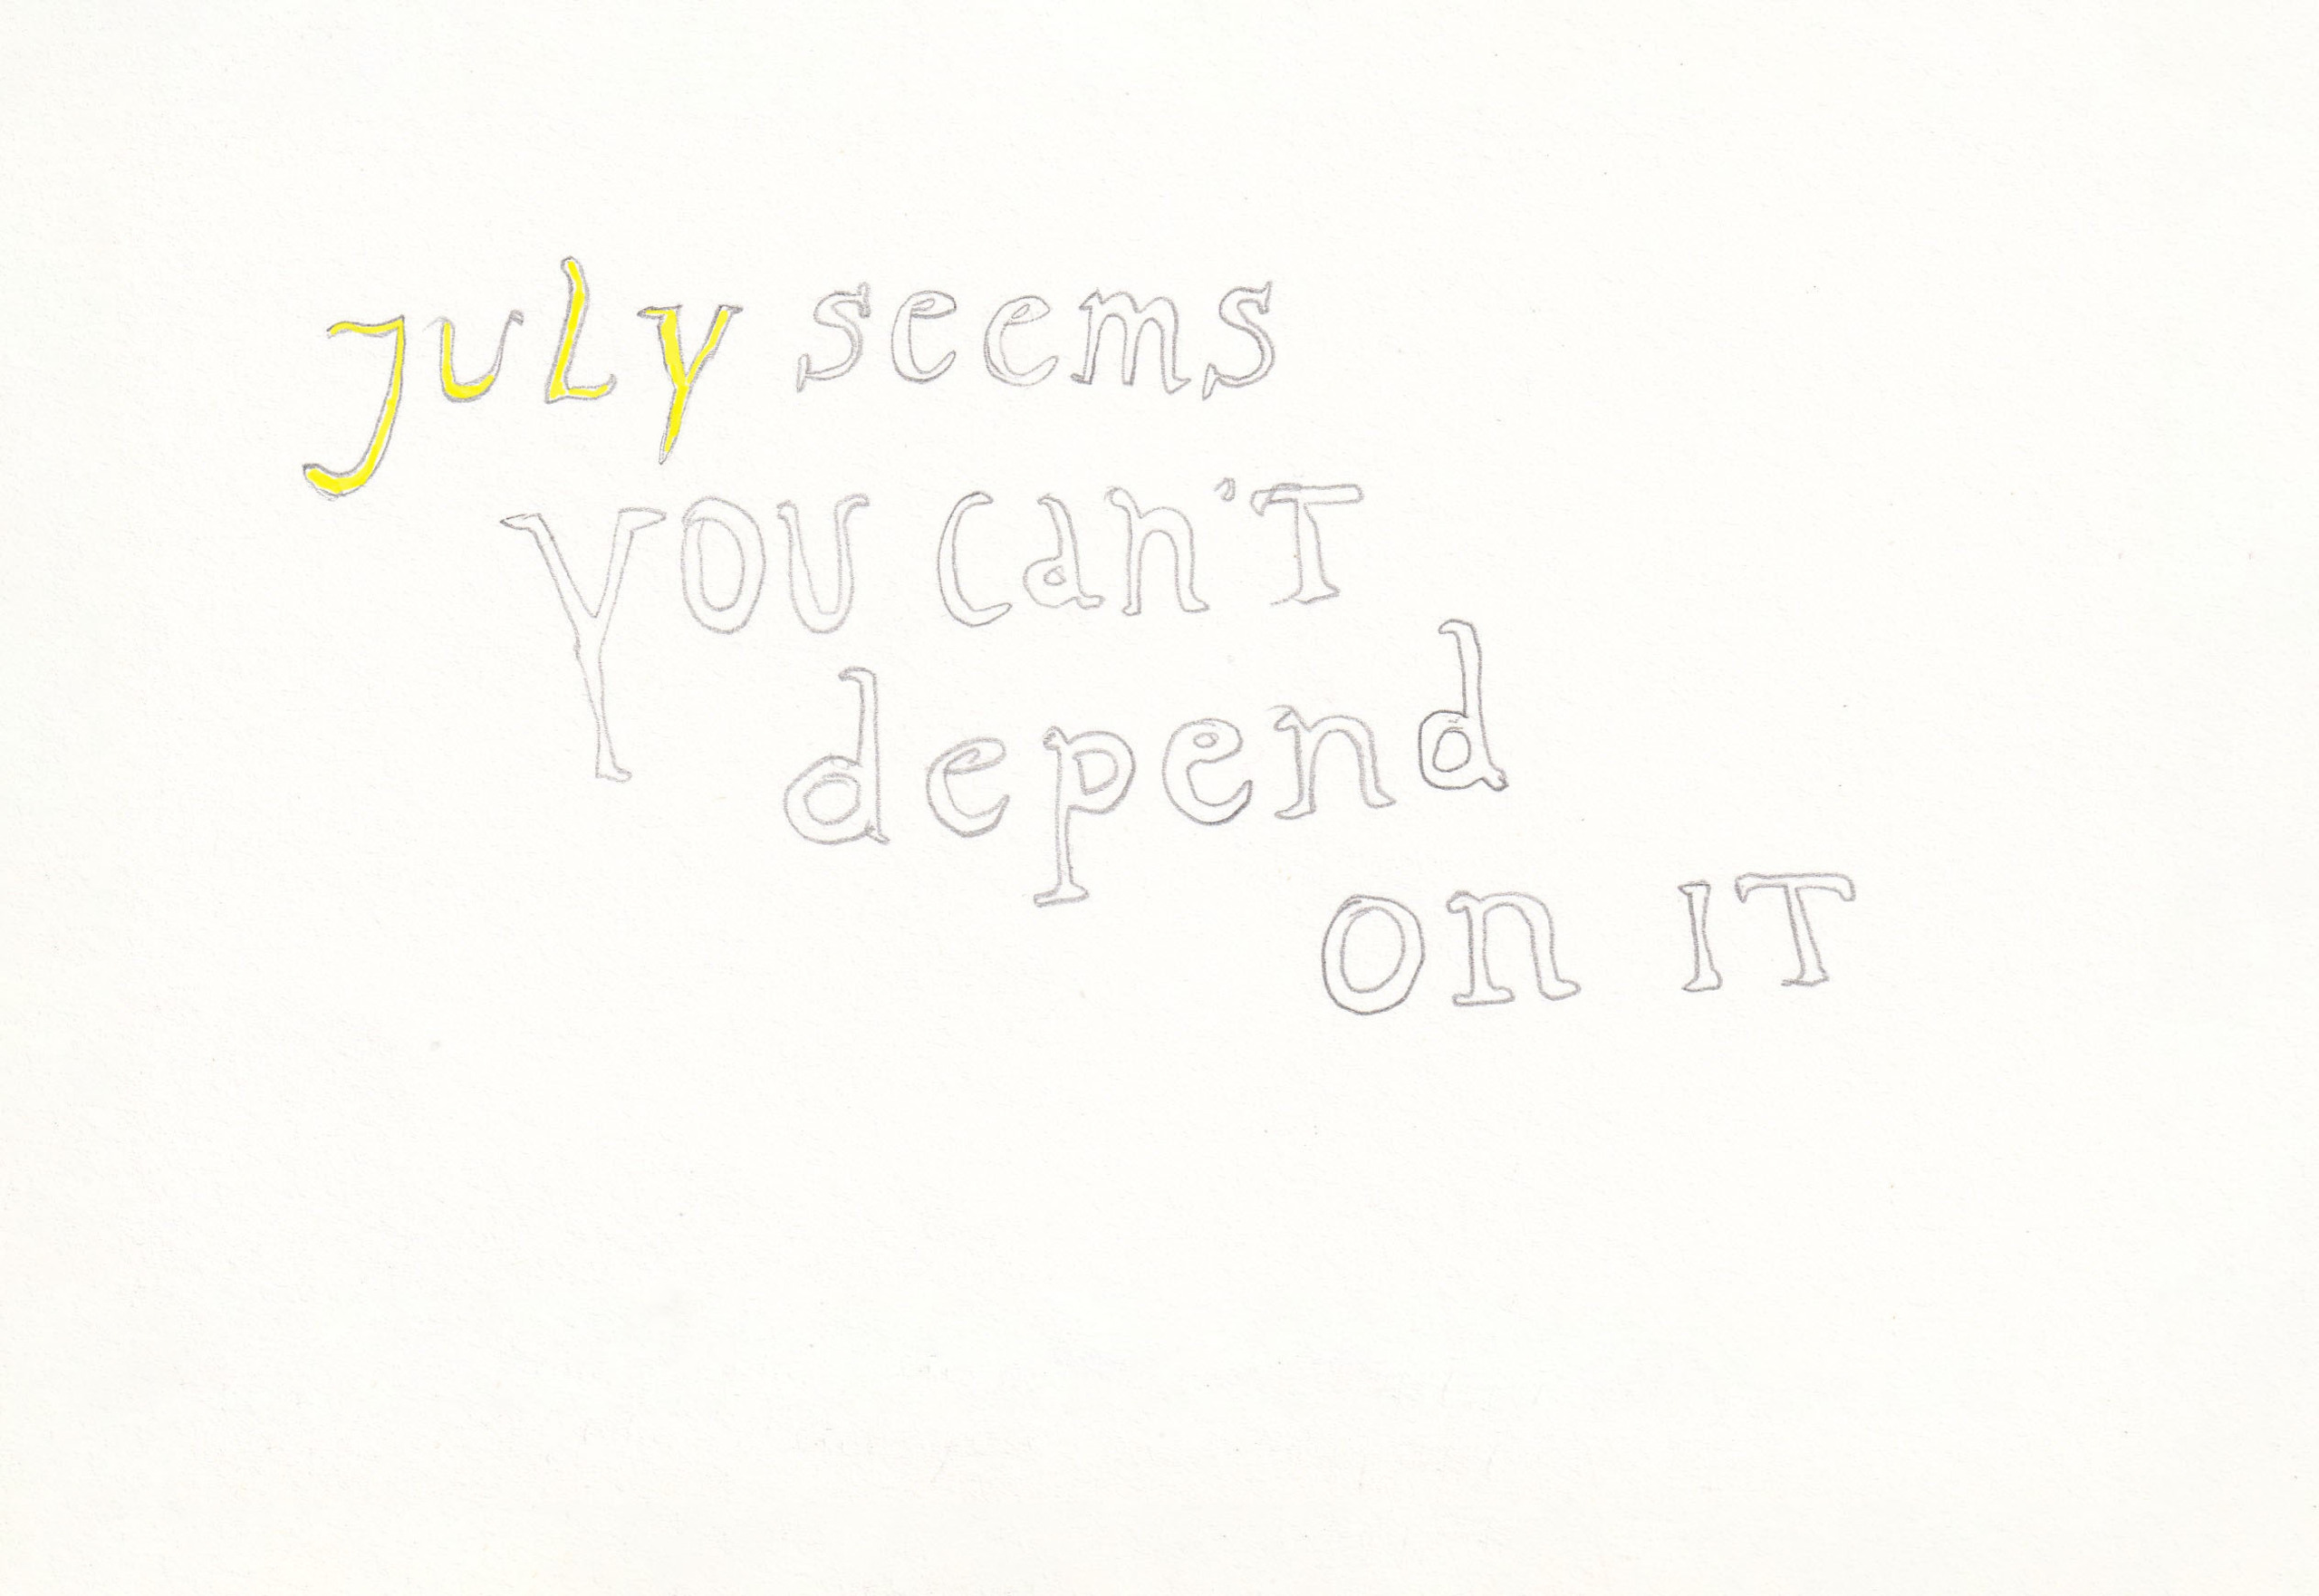 july seems
you can'T
depend
on IT